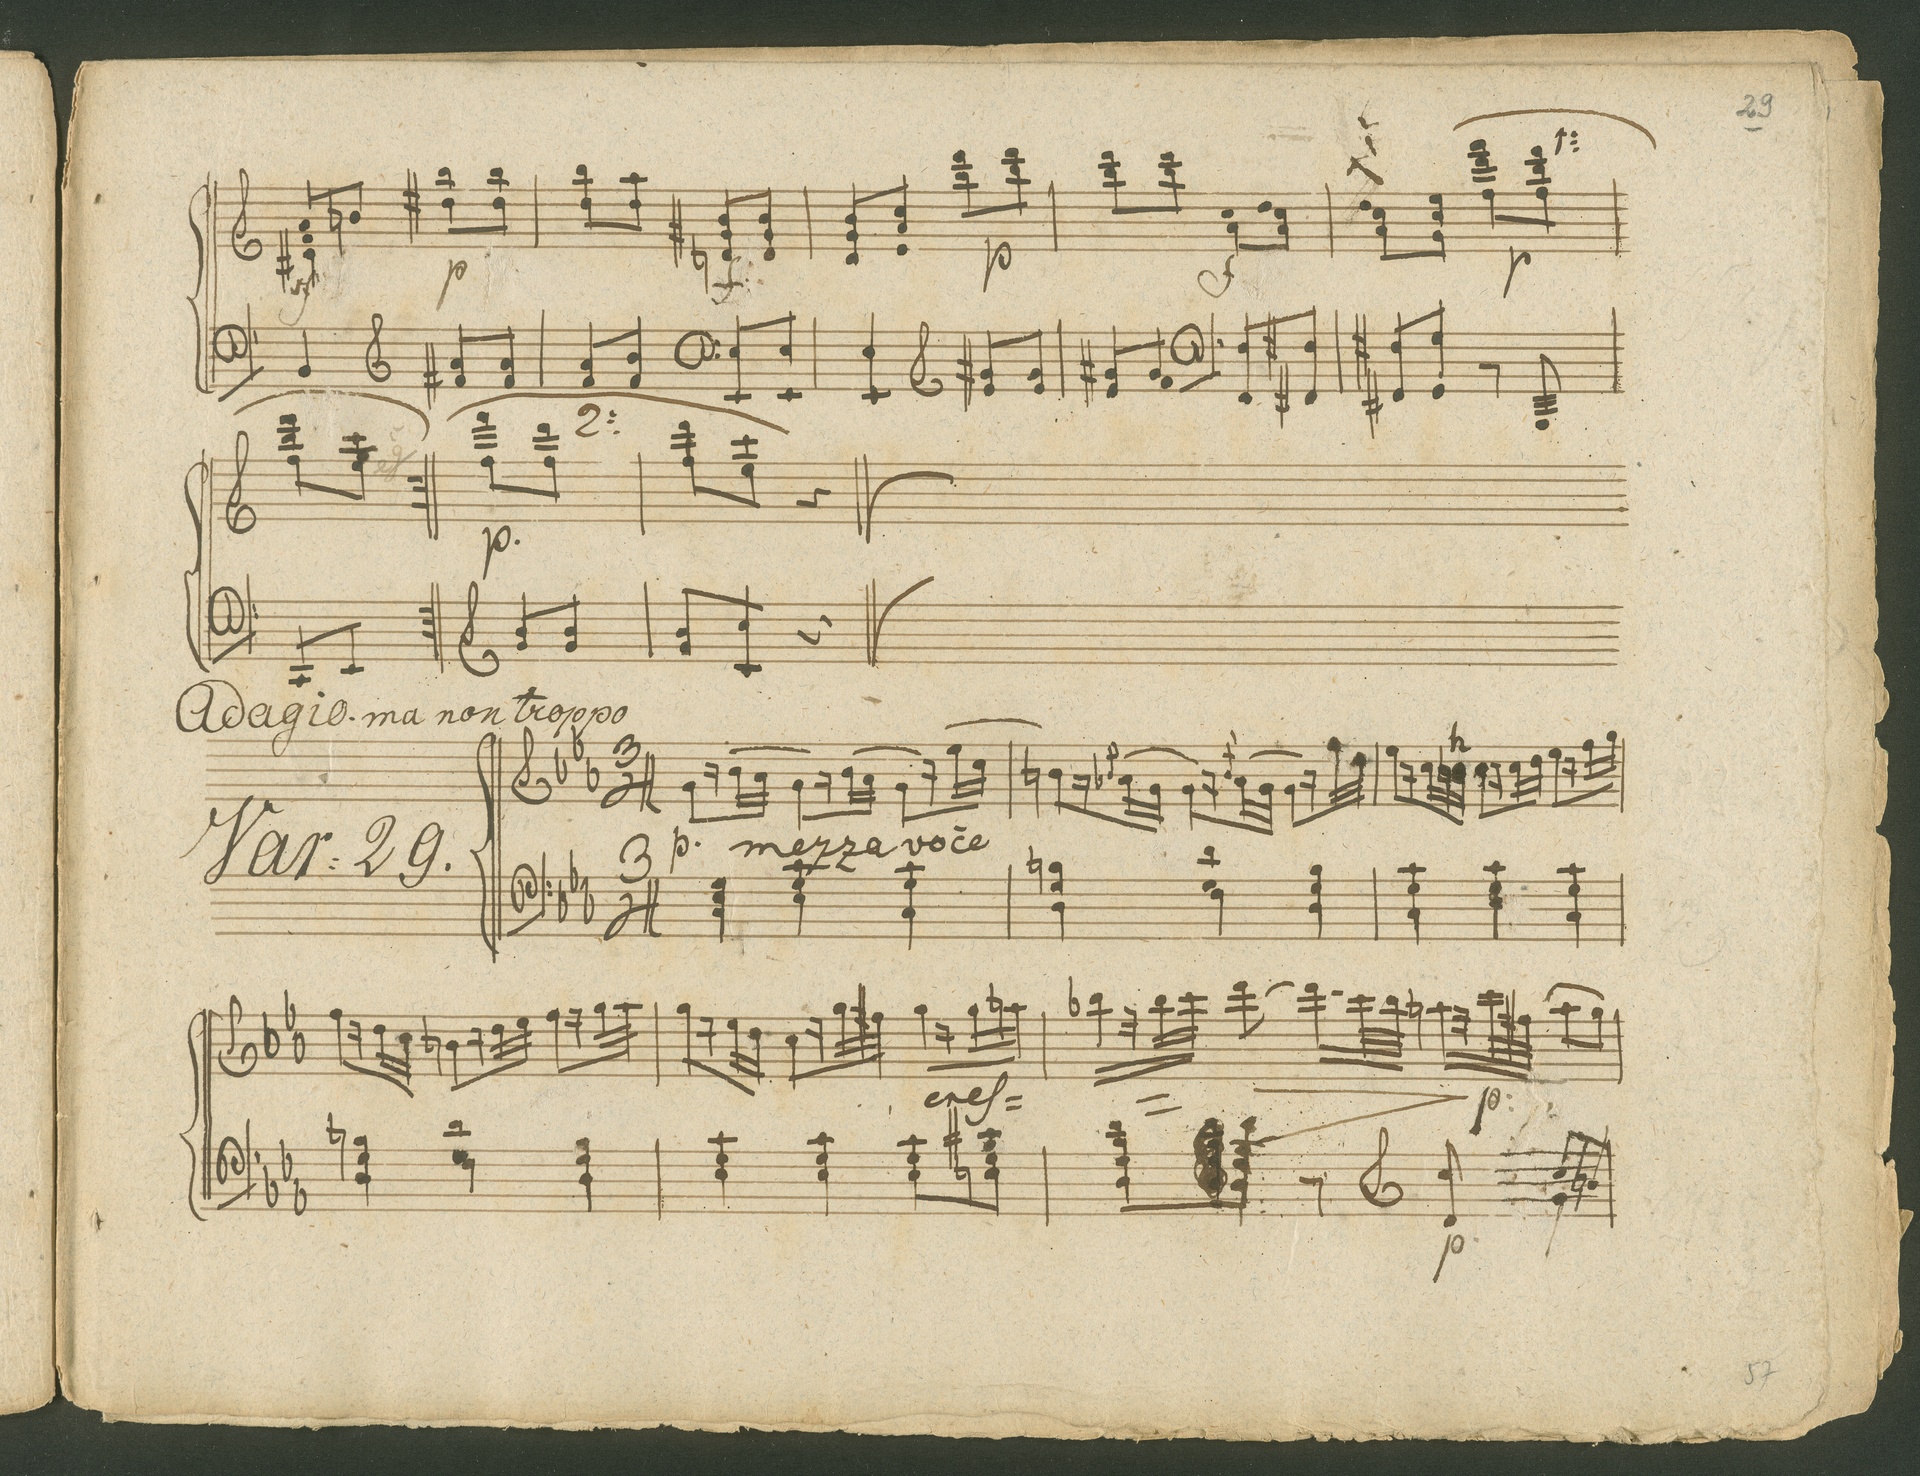 29
1:
p
f
p
f
p
2:
p.
Adagio. ma non troppo
Var: 29.
3
p. mezza voče
3
cres= =
p:
p
57